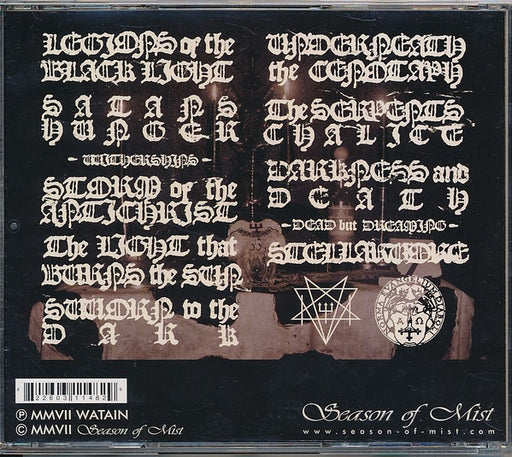 LEGIONS of the
BLACK LIGHT
SATANS
HUNGER
- WITHERSHINS -
STORM of the
ANTICHRIST
The LIGHT that
BURNS the SUN
SWORN to the
DARK
UNDERNEATH
the CENOTAPH
The SERPENTS
CHALICE
DARKNESS and
DEATH
- DEAD but DREAMING -
STELLARVORE
22603 11482
℗ MMVII WATAIN
© MMVII Season of Mist
Season of Mist
www.season-of-mist.com